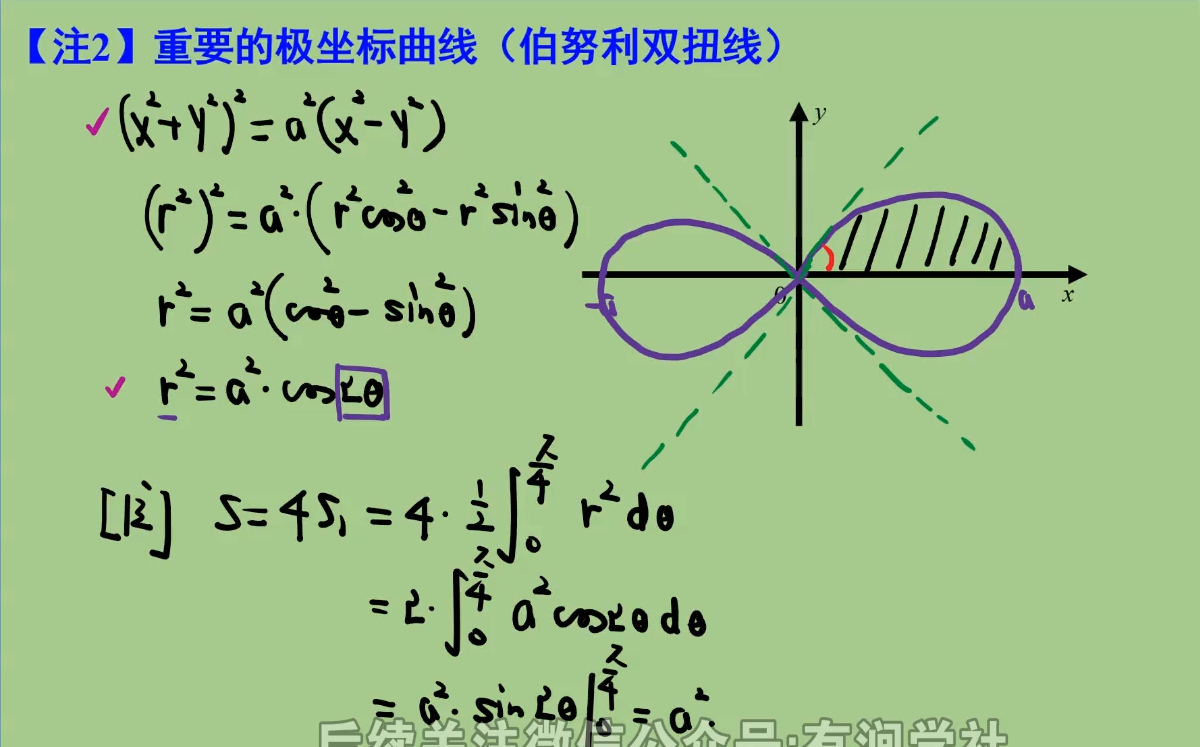 【注2】重要的极坐标曲线（伯努利双扭线）
(x²+y²)²=a²(x²-y²)
(r²)²=a²·(r²cos²θ-r²sin²θ)
r²=a²(cos²θ-sin²θ)
r²=a²·cos2θ
y
-a
0
a
x
S=4S₁=4·½∫₀^(π/4) r²dθ
=2·∫₀^(π/4) a²cos2θdθ
=a²·sin2θ|₀^(π/4)=a².
后续关注微信公众号:有洞学社